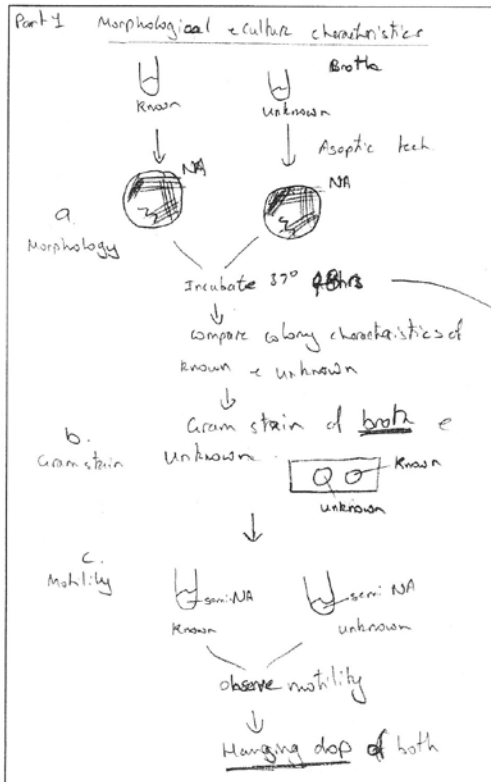 Part 1 Morphological & culture charecteristics
Broths
Known
unknown
Asoptic tech.
NA
NA
a.
Morphology
Incubate 37° 48hrs
compare colony characteristics of
known & unknown
Gram stain of broth &
unknown.
b.
Gram stain
Known
unknown
c.
Motility
semi NA
semi NA
Known
unknown
observe motility
Hanging dop of both